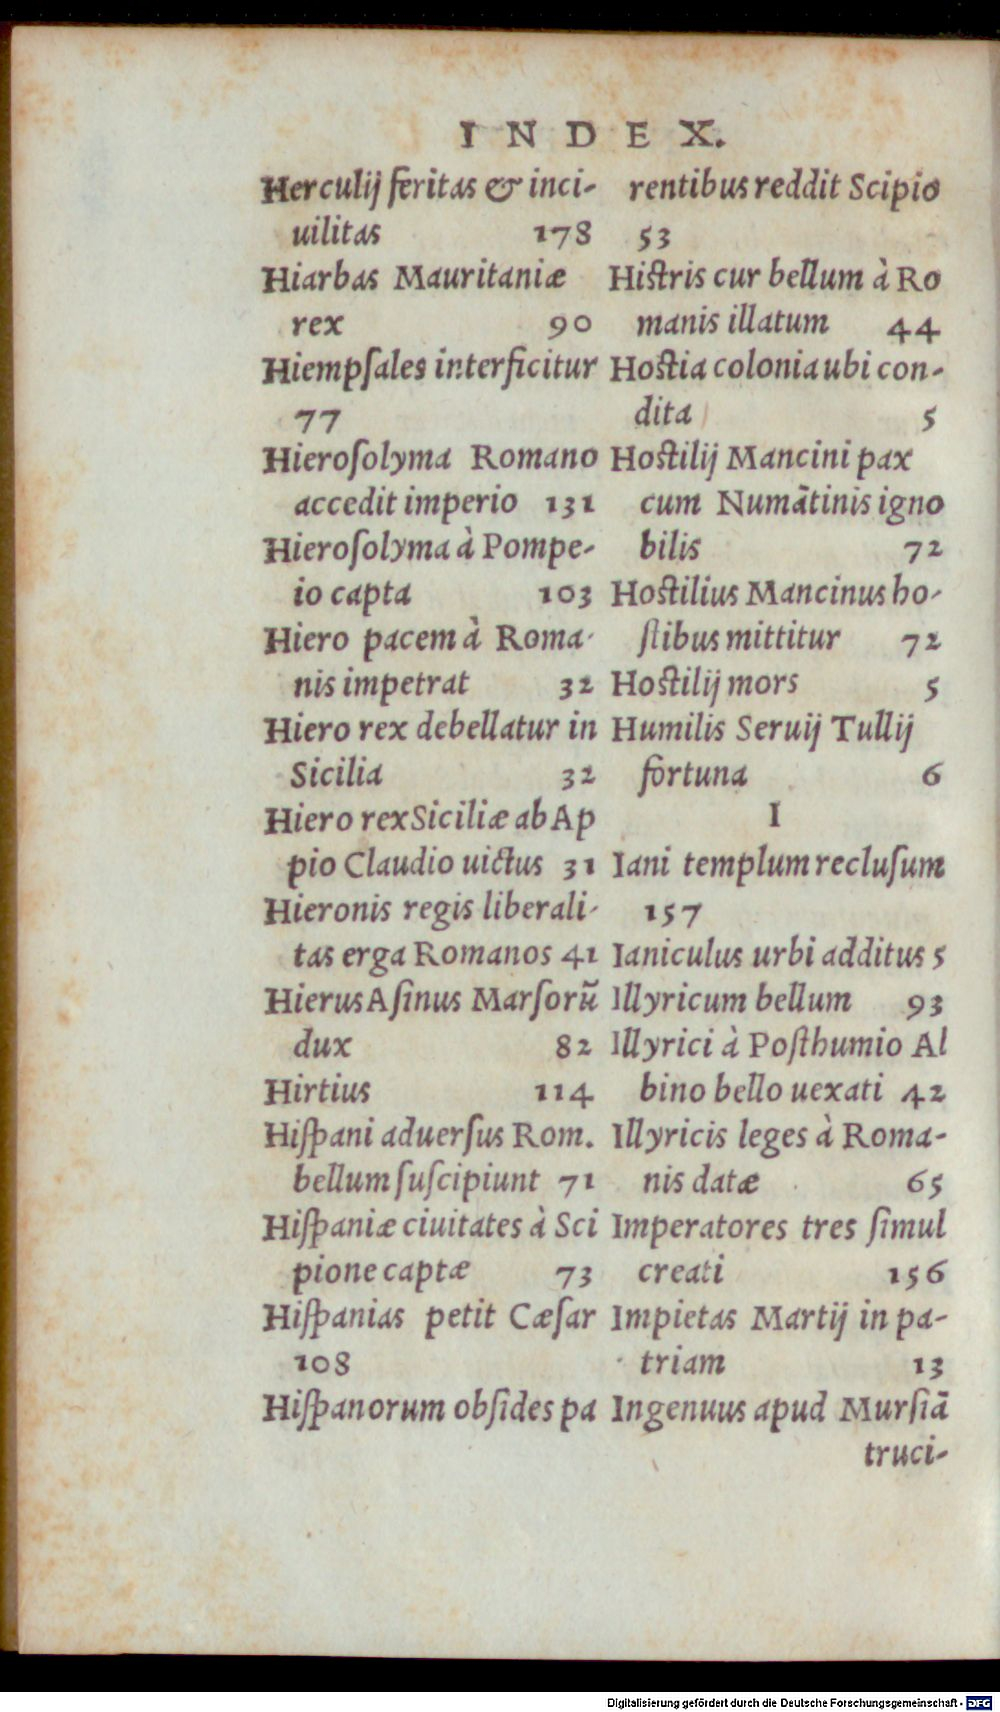 INDEX.
Herculij feritas & inci-
uilitas 178
Hiarbas Mauritaniæ
rex 90
Hiempſales interficitur
77
Hieroſolyma Romano
accedit imperio 131
Hieroſolyma à Pompe-
io capta 103
Hiero pacem à Roma-
nis impetrat 32
Hiero rex debellatur in
Sicilia 32
Hiero rex Siciliæ ab Ap
pio Claudio uictus 31
Hieronis regis liberali-
tas erga Romanos 41
Hierus Aſinus Marſorū
dux 82
Hirtius 114
Hiſpani aduerſus Rom.
bellum ſuſcipiunt 71
Hiſpaniæ ciuitates à Sci
pione captæ 73
Hiſpanias petit Cæſar
108
Hiſpanorum obſides pa
rentibus reddit Scipio
53
Hiſtris cur bellum à Ro
manis illatum 44
Hoſtia colonia ubi con-
dita 5
Hoſtilij Mancini pax
cum Numātinis igno
bilis 72
Hoſtilius Mancinus ho-
ſtibus mittitur 72
Hoſtilij mors 5
Humilis Seruij Tullij
fortuna 6
I
Iani templum recluſum
157
Ianiculus urbi additus 5
Illyricum bellum 93
Illyrici à Poſthumio Al
bino bello uexati 42
Illyricis leges à Roma-
nis datæ 65
Imperatores tres ſimul
creati 156
Impietas Martij in pa-
triam 13
Ingenuus apud Murſiā
truci-
Digitalisierung gefördert durch die Deutsche Forschungsgemeinschaft - DFG